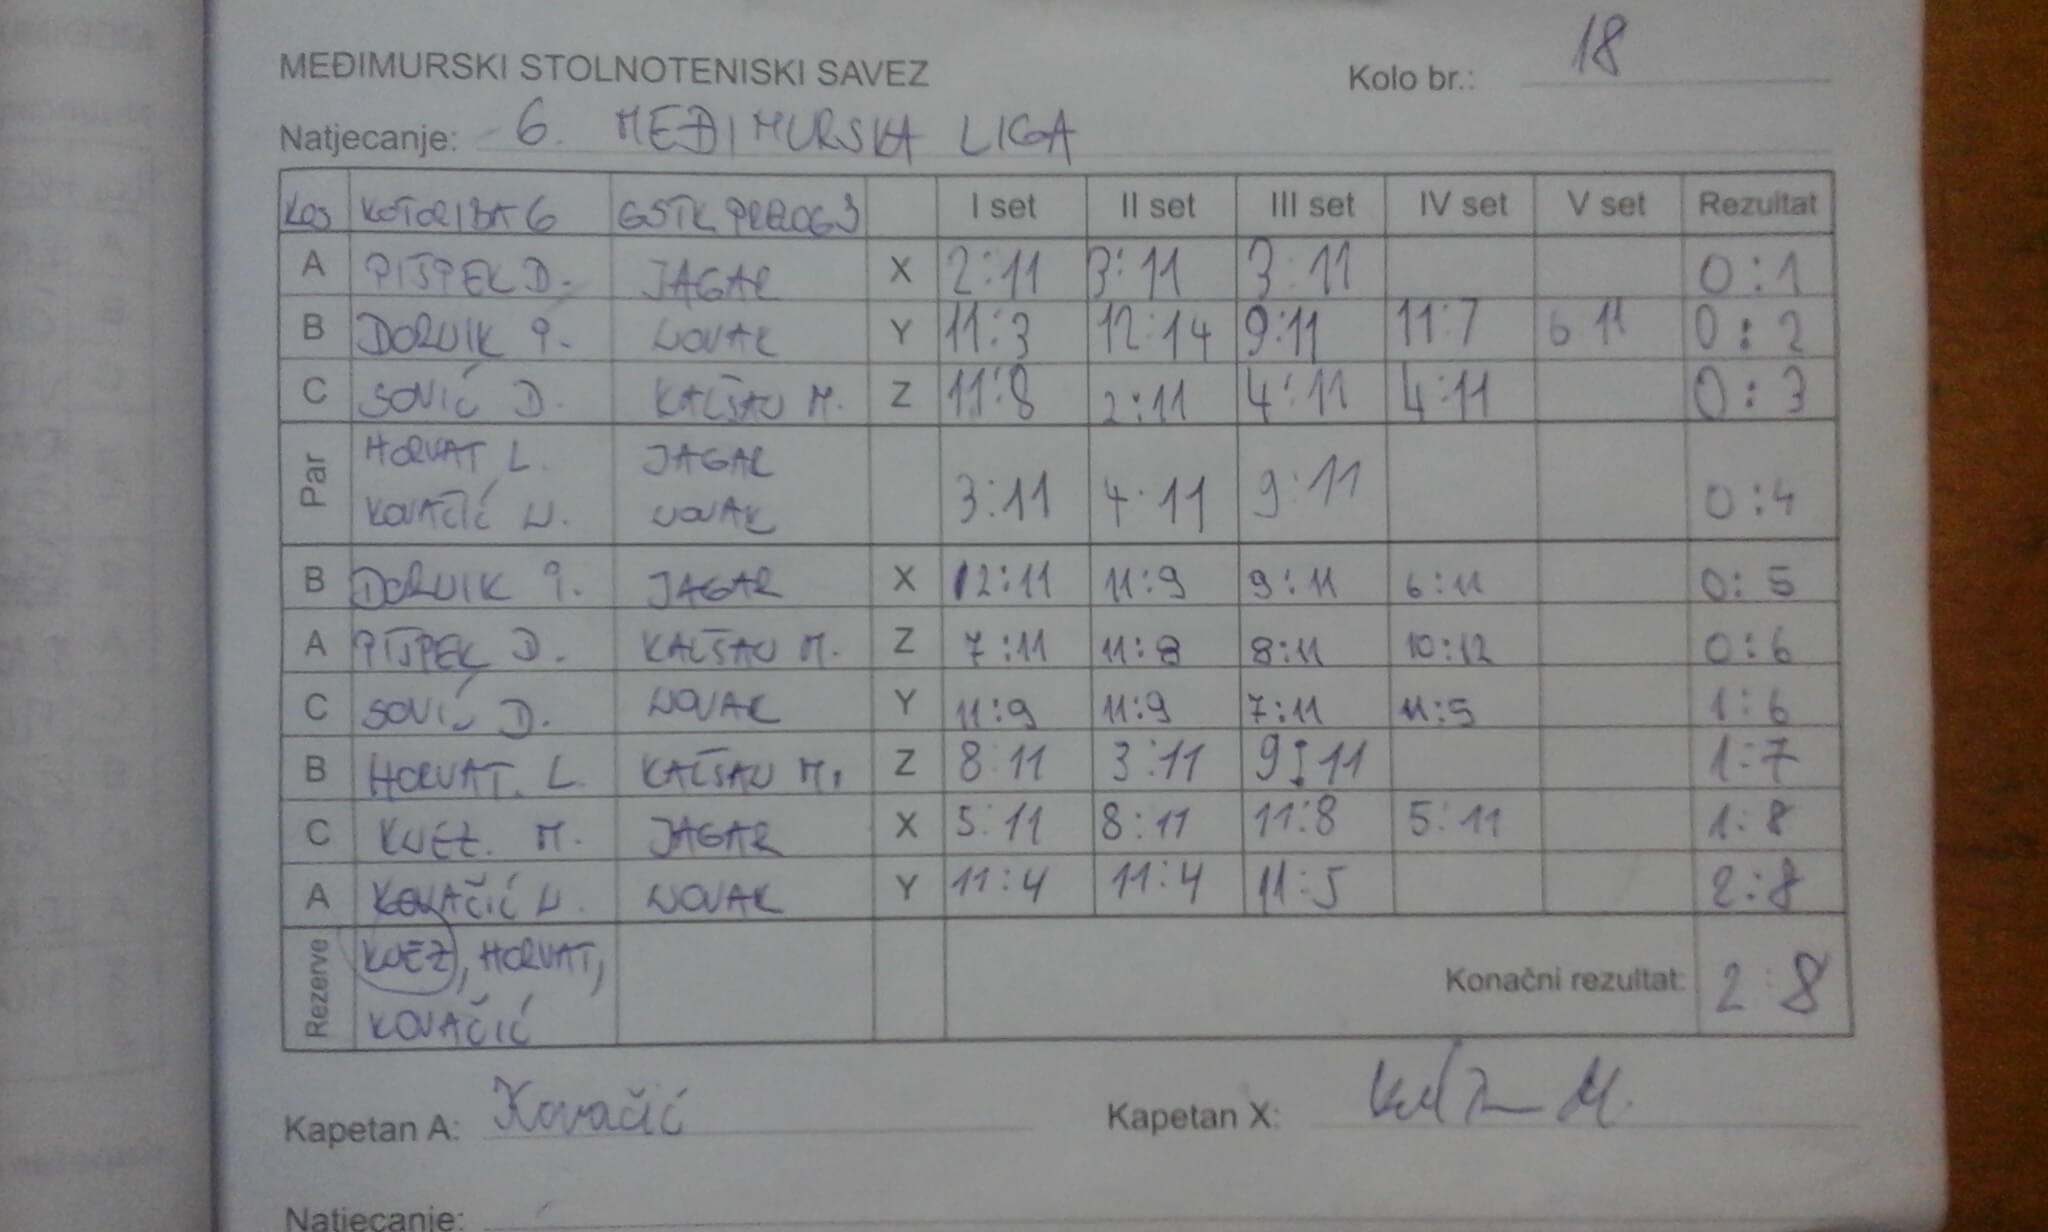 MEĐIMURSKI STOLNOTENISKI SAVEZ Kolo br.: 18
Natjecanje: 6. MEĐIMURSKA LIGA
KOTORIBA 6 GSTK PRELOG 3 I set II set III set IV set V set Rezultat
A PIŠPEK D. JAGAR X 2:11 3:11 3:11 0:1
B DORVIK P. NOVAK Y 11:3 12:14 9:11 11:7 6 11 0:2
C SOVIĆ D. KALŠAN M. Z 11:8 2:11 4:11 4:11 0:3
Par HORVAT L. JAGAR
KOVAČIĆ N. NOVAK 3:11 4:11 9:11 0:4
B DORVIK P. JAGAR X 12:11 11:9 9:11 6:11 0:5
A PIŠPEK D. KALŠAN M. Z 7:11 11:8 8:11 10:12 0:6
C SOVIĆ D. NOVAK Y 11:9 11:9 7:11 11:5 1:6
B HORVAT. L. KALŠAN M. Z 8:11 3:11 9:11 1:7
C KNEZ. M. JAGAR X 5:11 8:11 11:8 5:11 1:8
A KOVAČIĆ N. NOVAK Y 11:4 11:4 11:5 2:8
Rezerve KNEZ, HORVAT,
KOVAČIĆ Konačni rezultat: 2:8
Kapetan A: Kovačić Kapetan X:
Natjecanje: